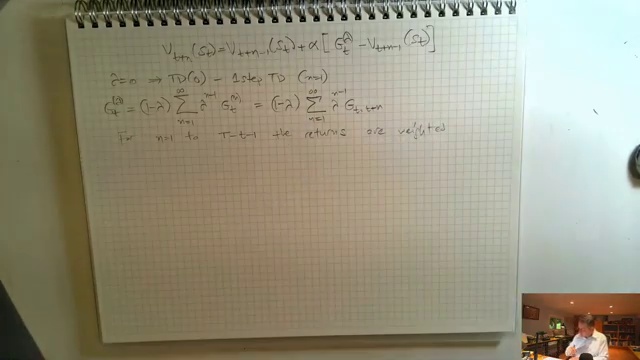 V_{t+n}(S_t) = V_{t+n-1}(S_t) + α [ G_t^λ - V_{t+n-1}(S_t) ]
λ=0 ⇒ TD(0) - 1 step TD (n=1)
G_t^{(λ)} = (1-λ) ∑_{n=1}^{∞} λ^{n-1} G_t^{(n)} = (1-λ) ∑_{n=1}^{∞} λ^{n-1} G_{t,t+n}
For n=1 to T-t-1 the returns are weighted